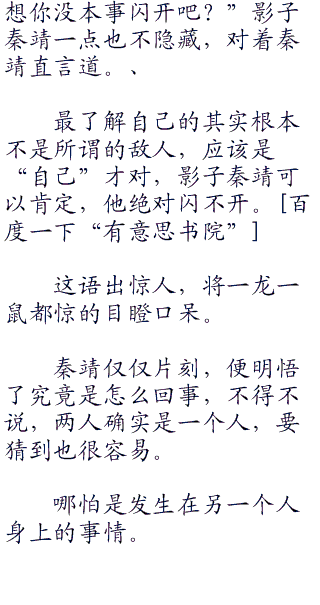 想你没本事闪开吧？”影子
秦靖一点也不隐藏，对着秦
靖直言道。、
最了解自己的其实根本
不是所谓的敌人，应该是
“自己”才对，影子秦靖可
以肯定，他绝对闪不开。[百
度一下“有意思书院”]
这语出惊人，将一龙一
鼠都惊的目瞪口呆。
秦靖仅仅片刻，便明悟
了究竟是怎么回事，不得不
说，两人确实是一个人，要
猜到也很容易。
哪怕是发生在另一个人
身上的事情。